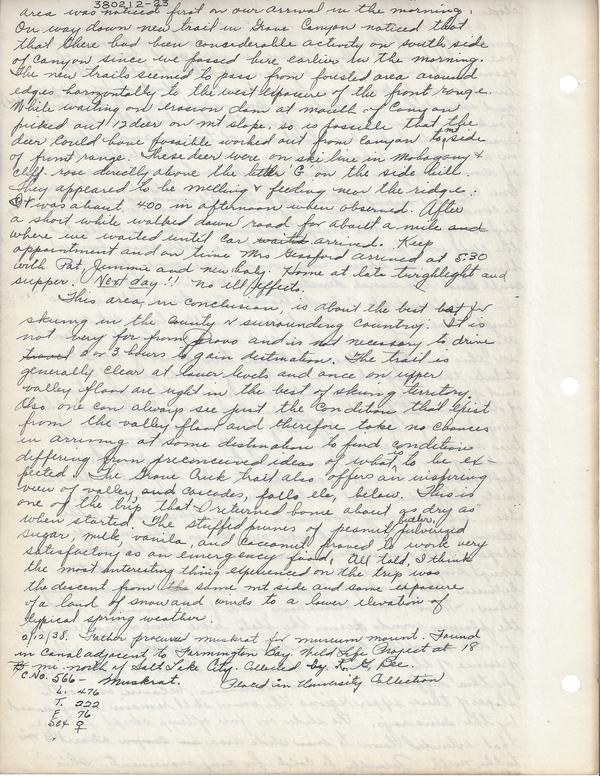 380212-23
area was noticed first on our arrival in the morning.
On way down new trail in Grove Canyon noticed that
that there had been considerable activity on south side
of canyon since we passed here earlier in the morning.
The new trails seemed to pass from forested area around
edges horizontally to the west exposure of the front range.
While waiting on erosion dam at mouth of Canyon
picked out 12 deer on mt slope, so is possible that the
deer could have possible worked out from canyon to mt side
of front range. These deer were on ski line in Mahogany &
cliff-rose directly above the letter 'G' on the side hill.
They appeared to be milling & feeding near the ridge.
It was about 4:00 in afternoon when observed. After
a short while walked down road for about a mile and
where we waited until car waited arrived. Keep
appointment and on time Mrs arrived at 5:30
with Pat, Jimmie and new baby. Home at late twylight and
supper. Next day!! No ill effects.
This area, in conclusion, is about the best bet for
skiing in the county & surrounding country. It is
not very far from Provo and is not necessary to drive
travel 2 or 3 hours to gain destination. The trail is
generally clear at lower levels and once on upper
valley floor are right in the best of skiing territory.
Also one can always see just the condition that exist
from the valley floor and therefore take no chances
in arriving at some distination to find conditions
differing from preconceived ideas of what to be ex-
pected. The Grove Creek trail also offers an inspiring
view of valley, and cascades, falls etc, below. This is
one of the trip that I returned home about as dry as
when started. The stuffed prunes of peanut butter, pulverized
sugar, milk, vanila, and cocoanut proved to work very
satisfactory as an emergency food. All told, I think
the most interesting thing experienced on the trip was
the descent from the same mt side and same exposure
of a land of snow and winds to a lower elevation of
typical spring weather.
2/12/38. Father procured muskrat for museum mount. Found
in canal adjacent to Farmington Bay Wild Life Project at 18
mi. north of Salt Lake City. Collected by R. G. Bee.
C. No. 566- Muskrat. Placed in University Collection
L. 476
T. 222
F. 76
Sex ♀